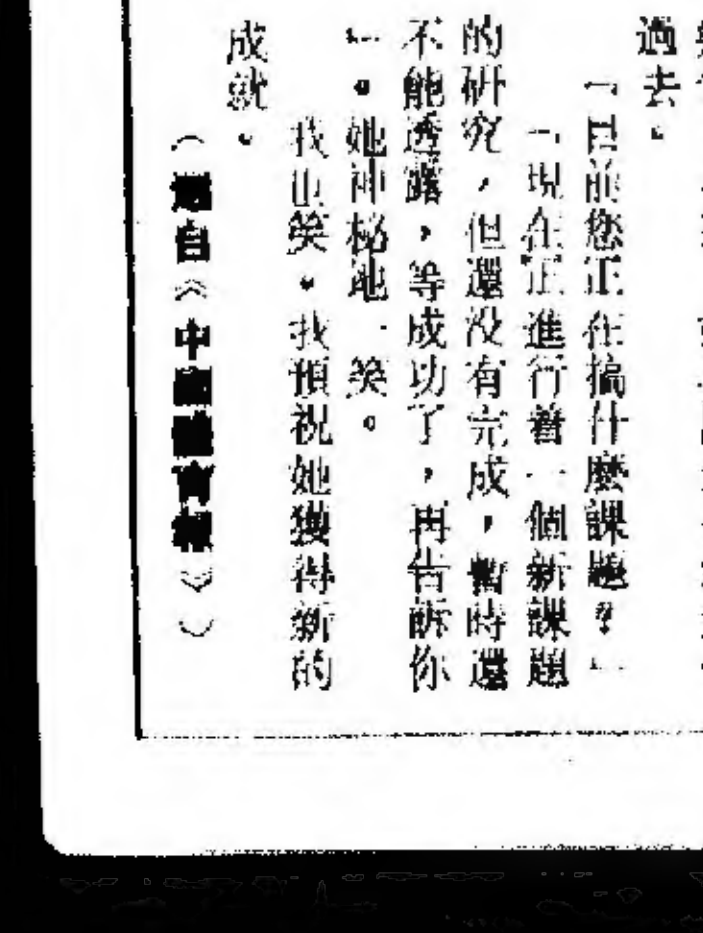 過去。
「目前您正在搞什麼課題？」
「現在正進行着一個新課題
的研究，但還没有完成，暫時還
不能透露，等成功了，再告訴你
」。她神秘地一笑。
我也笑。我預祝她獲得新的
成就。
（選自《中國體育報》）